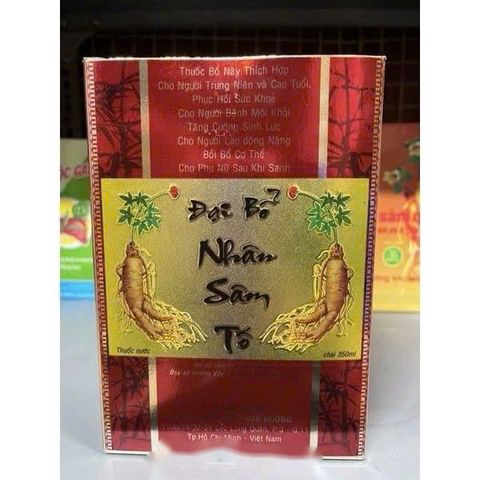 Thuốc Bổ Này Thích Hợp
Cho Người Trung Niên và Cao Tuổi.
Phục Hồi Sức Khoẻ
Cho Người Bệnh Mới Khỏi
Tăng Cường Sinh Lực
Cho Người Lao động Nặng
Bồi Bổ Cơ Thể
Cho Phụ Nữ Sau Khi Sanh
Đại Bổ
Nhân
Sâm
Tố
Thuốc nước
chai 350ml
Long Quân, P.5 - Q.11
Tp Hồ Chí Minh - Việt Nam